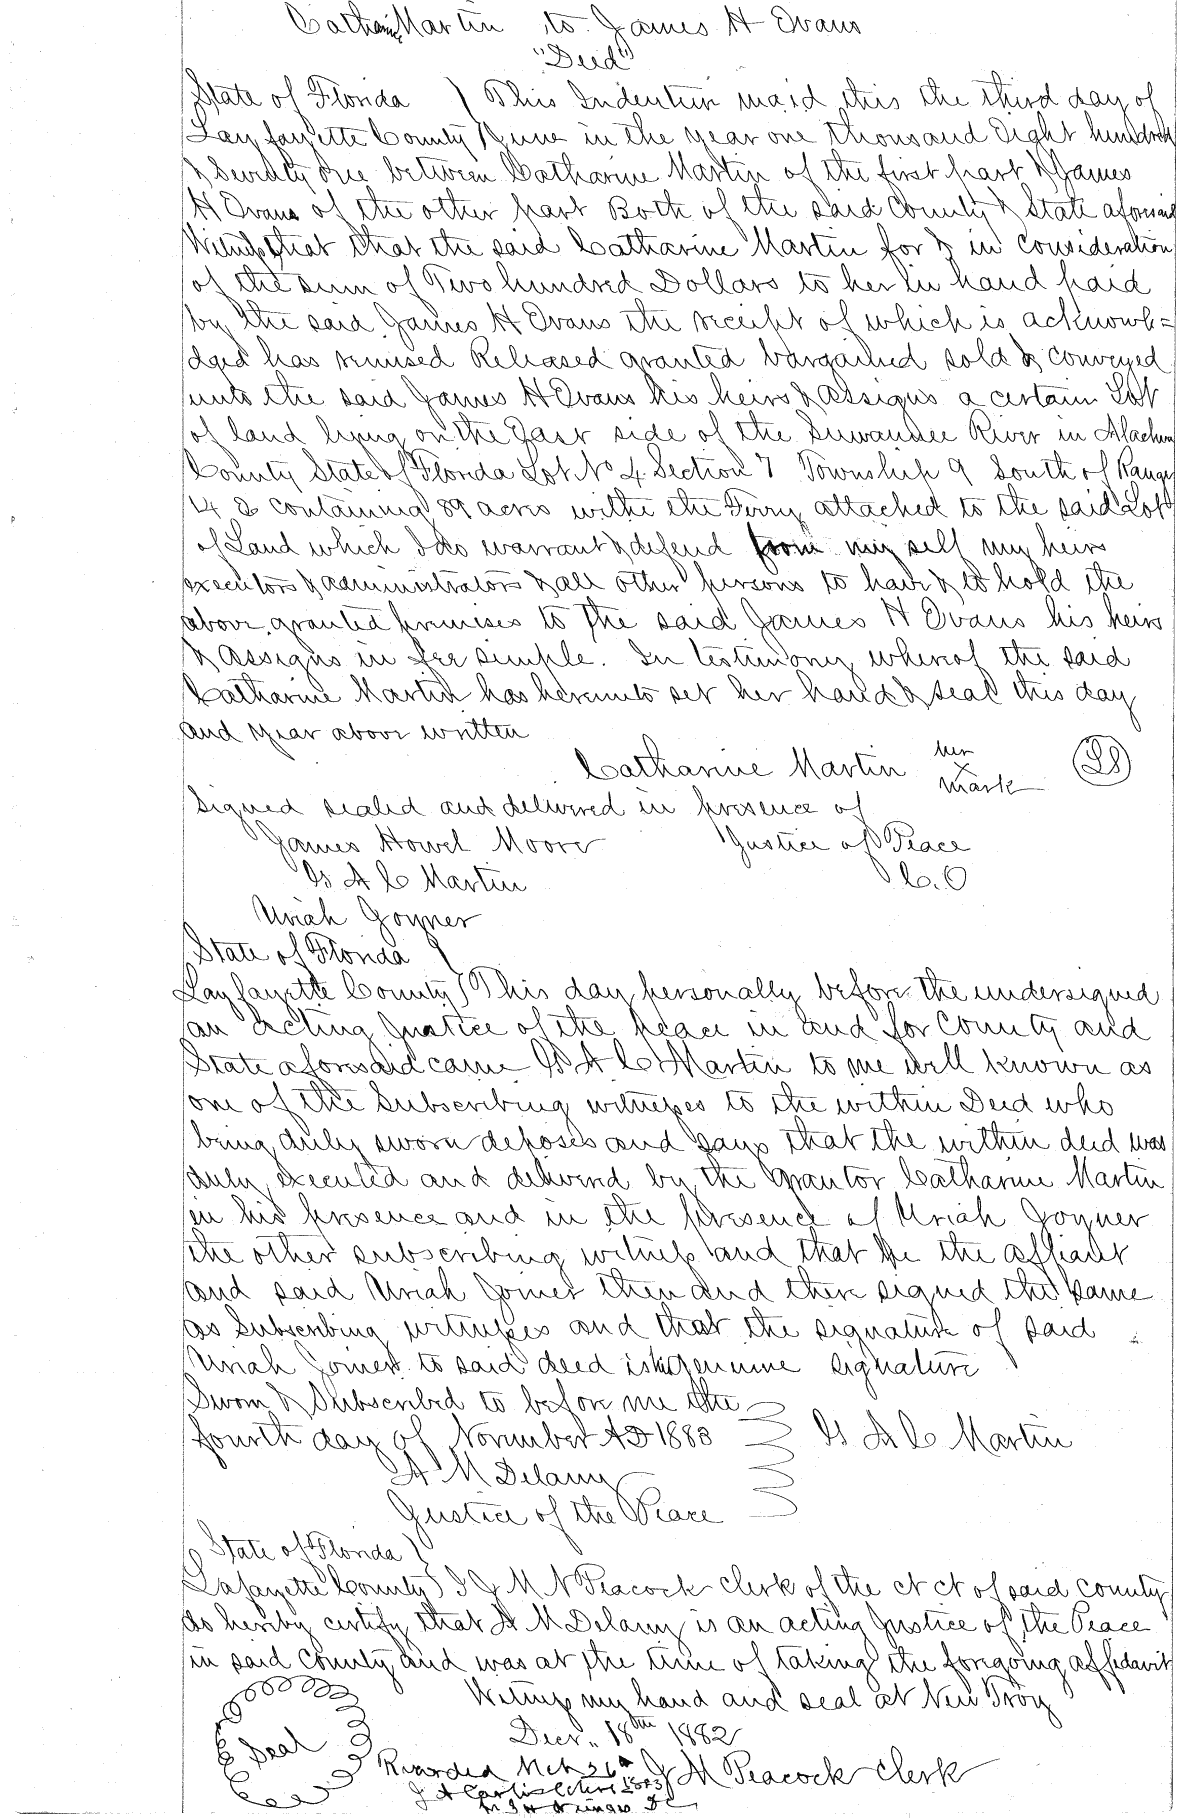 Catharine Martin to James H Evans
"Deed"
State of Florida ) This Indenture maid this the third day of
Layfayette County ) June in the year one thousand Eight hundred
& Seventy one between Catharine Martin of the first part & James
H Evans of the other part Both of the said County & State aforesaid
Witnesseth that the said Catharine Martin for & in consideration
of the sum of Two hundred Dollars to her in hand paid
by the said James H Evans the receipt of which is acknowle=
dged has remised Released granted bargained sold & conveyed
unto the said James H Evans his heirs & Assigns a certain Lot
of land lying on the East side of the Suwannee River in Alachua
County State of Florida Lot No 4 Section 7 Township 9 South of Range
14 E containing 89 acres withe the Ferry attached to the said Lot
of Land which I do warrant & defend from my self my heirs
executors & administrators & all other persons to have & to hold the
above granted premises to the said James H Evans his heirs
& Assigns in fee simple. In testimony whereof the said
Catharine Martin has hereunto set her hand & seal this day
and year above written
Catharine Martin her x mark (LS)
Signed sealed and delivered in presence of
James Howel Moore Justice of Peace
G A C Martin
Uriah Joyner
State of Florida )
Layfayette County ) This day personally before the undersigned
an acting Justice of the peace in and for County and
State aforesaid came G A C Martin to me well known as
one of the Subscribing witnesses to the within Deed who
being duly sworn deposes and says that the within deed was
duly executed and delivered by the grantor Catharine Martin
in his presence and in the presence of Uriah Joyner
the other subscribing witness and that he the affiant
and said Uriah Joiner then and there signed the same
as Subscribing witnesses and that the signature of said
Uriah Joiner to said deed is his genuine signature
Sworn & Subscribed to before me the
fourth day of November AD 1883 G A C Martin
A M Delany
Justice of the Peace
State of Florida )
Lafayette County ) I J M N Peacock clerk of the ct ct of said county
do hereby certify that A M Delany is an acting Justice of the Peace
in said county and was at the time of taking the foregoing affidavit
Witness my hand and seal at New Troy
Decr. 18th 1882
Seal
Recorded Mch 26th J M Peacock clerk
J A Carlisle 1883